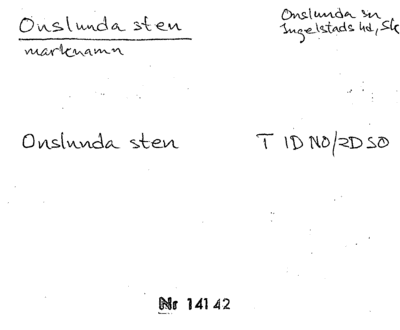 Onslunda sten
Onslunda sn
Ingelstads hd, Sk
marknamn
Onslunda sten T 1D NO/2D SO
Nr 14142